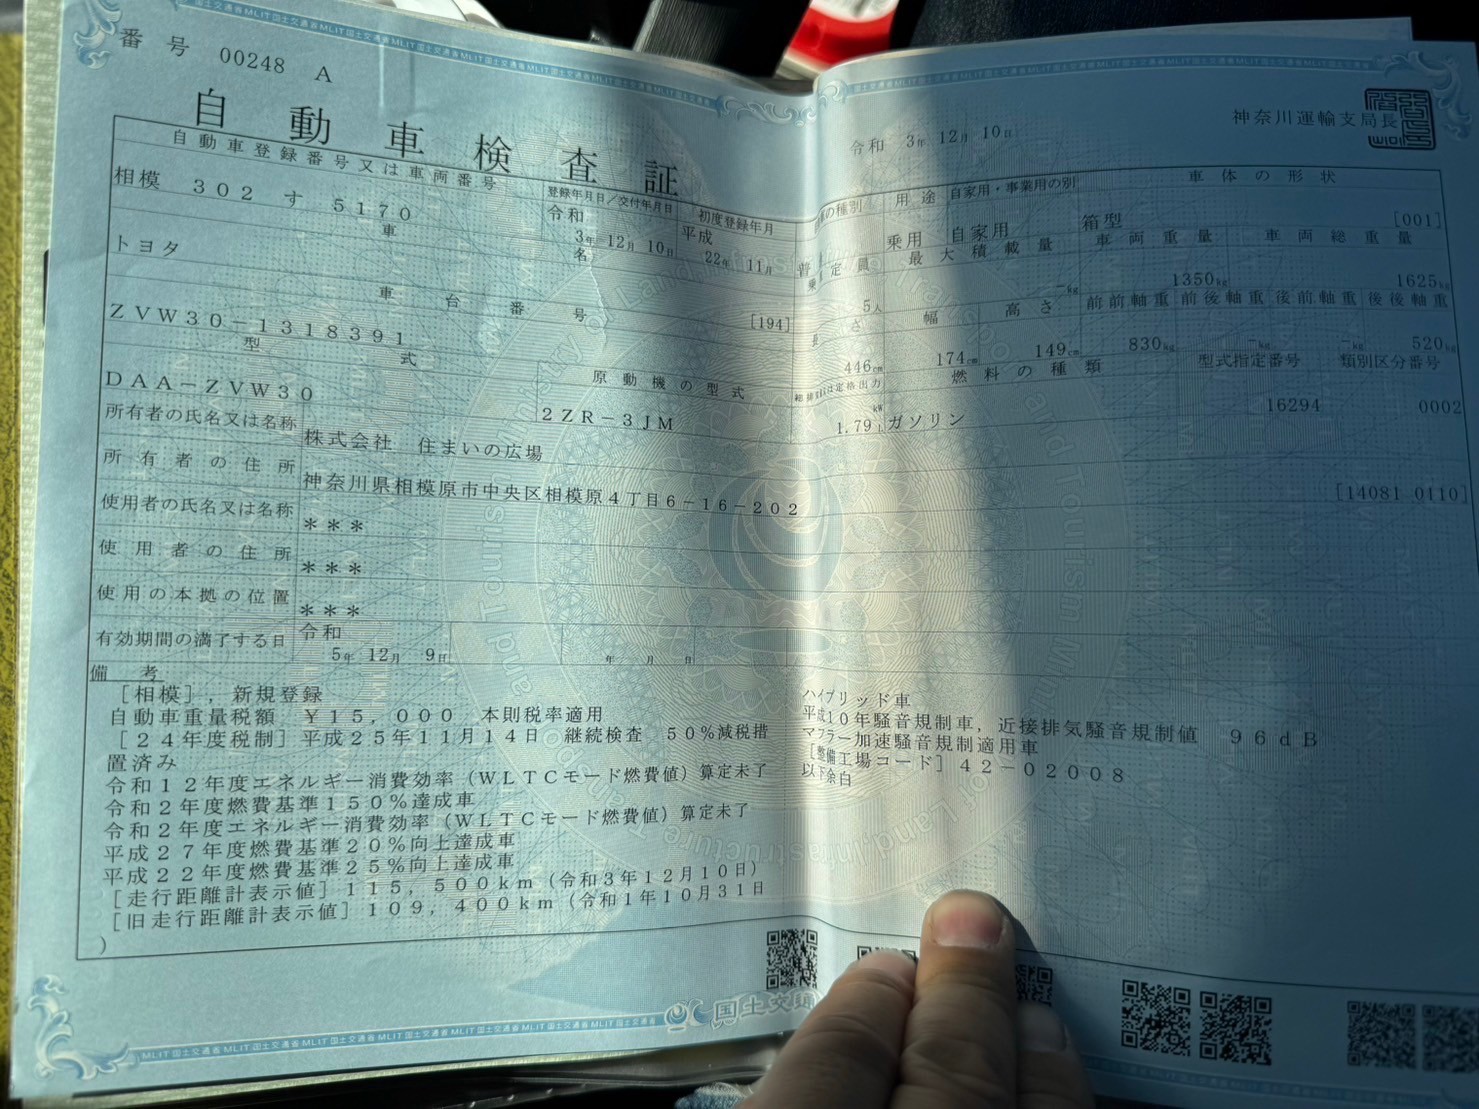 番号 00248 A
自動車検査証
令和 3年 12月 10日
神奈川運輸支局長
自動車登録番号又は車両番号
登録年月日/交付年月日
初度登録年月
の種別
用途
自家用・事業用の別
車体の形状
相模 302 す 5170
令和 3年 12月 10日
平成 22年 11月
普
乗用
自家用
箱型
[001]
車名
定員
最大積載量
車両重量
車両総重量
トヨタ
[194]
5人
-kg
1350kg
1625kg
車台番号
長さ
幅
高さ
前前軸重
前後軸重
後前軸重
後後軸重
ZVW30-1318391
446cm
174cm
149cm
830kg
-kg
-kg
520kg
型式
原動機の型式
燃料の種類
型式指定番号
類別区分番号
DAA-ZVW30
2ZR-3JM
kW
1.79L
ガソリン
16294
0002
所有者の氏名又は名称
株式会社 住まいの広場
所有者の住所
神奈川県相模原市中央区相模原4丁目6-16-202
[14081 0110]
使用者の氏名又は名称
***
使用者の住所
***
使用の本拠の位置
***
有効期間の満了する日
令和 5年 12月 9日
年 月 日
備考
[相模], 新規登録
自動車重量税額 ¥15,000 本則税率適用
[24年度税制] 平成25年11月14日 継続検査 50%減税措
置済み
令和12年度エネルギー消費効率(WLTCモード燃費値)算定未了
令和2年度燃費基準150%達成車
令和2年度エネルギー消費効率(WLTCモード燃費値)算定未了
平成27年度燃費基準20%向上達成車
平成22年度燃費基準25%向上達成車
[走行距離計表示値] 115,500km(令和3年12月10日)
[旧走行距離計表示値] 109,400km(令和1年10月31日
)
ハイブリッド車
平成10年騒音規制車, 近接排気騒音規制値 96dB
マフラー加速騒音規制適用車
[整備工場コード] 42-02008
以下余白
国土交通